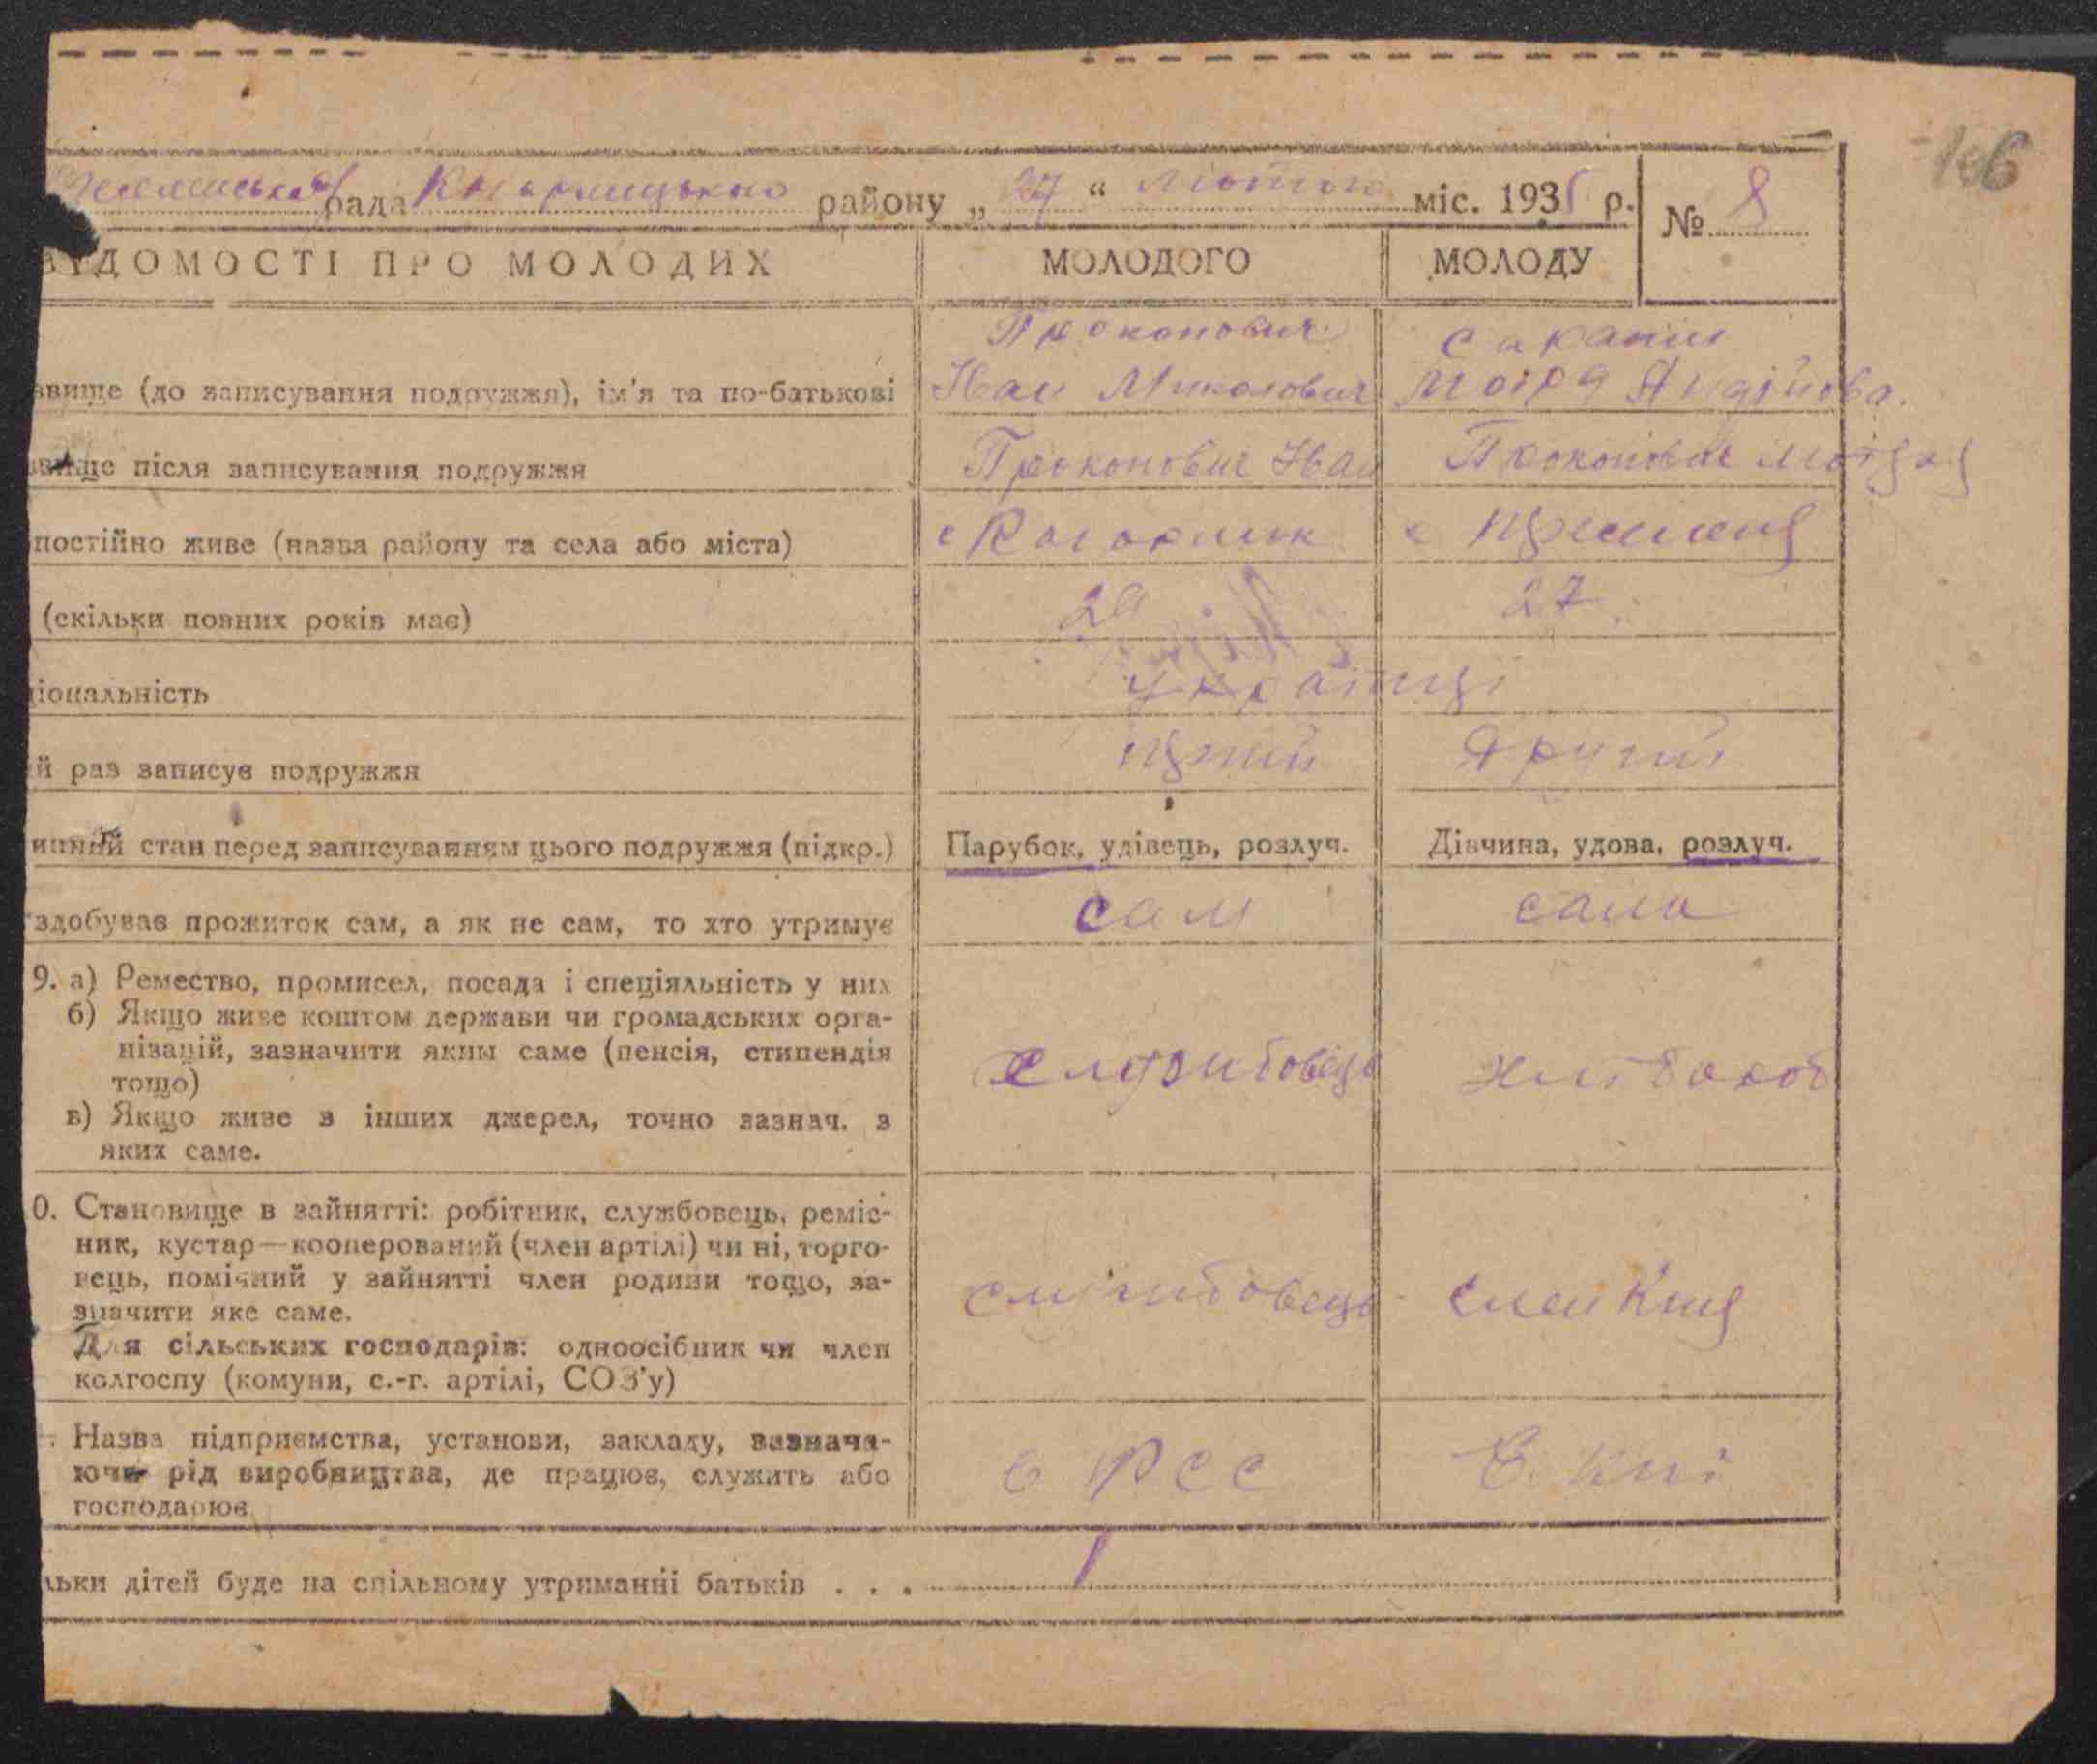 166
рада Кагарлицького району „ 27 “ лютого міс. 1935 р. № 8
ВІДОМОСТІ ПРО МОЛОДИХ МОЛОДОГО МОЛОДУ
Прокопович
звище (до записування подружжя), ім'я та по-батькові Іван Миколович
звище після записування подружжя Прокопович Іван Прокопович
постійно живе (назва району та села або міста) с Кагарлик с
(скільки повних років має) 27
ціональність Українці
й раз записує подружжя Другий
инний стан перед записуванням цього подружжя (підкр.) Парубок, удівець, розлуч. Дівчина, удова, розлуч.
здобуває прожиток сам, а як не сам, то хто утримує сам сама
9. а) Ремество, промисел, посада і спеціяльність у них
б) Якщо живе коштом держави чи громадських орга-
нізацій, зазначити яким саме (пенсія, стипендія
тощо) хлібороб
в) Якщо живе з інших джерел, точно зазнач. з
яких саме.
0. Становище в зайнятті: робітник, службовець, реміс-
ник, кустар—кооперований (член артілі) чи ні, торго-
вець, помічний у зайнятті член родини тощо, за-
значити яке саме.
Для сільських господарів: одноосібник чи член
колгоспу (комуни, с.-г. артілі, СОЗ'у)
Назва підприємства, установи, закладу, зазнача-
ючи рід виробництва, де працює, служить або
господарює
льки дітей буде на спільному утриманні батьків . . . 1